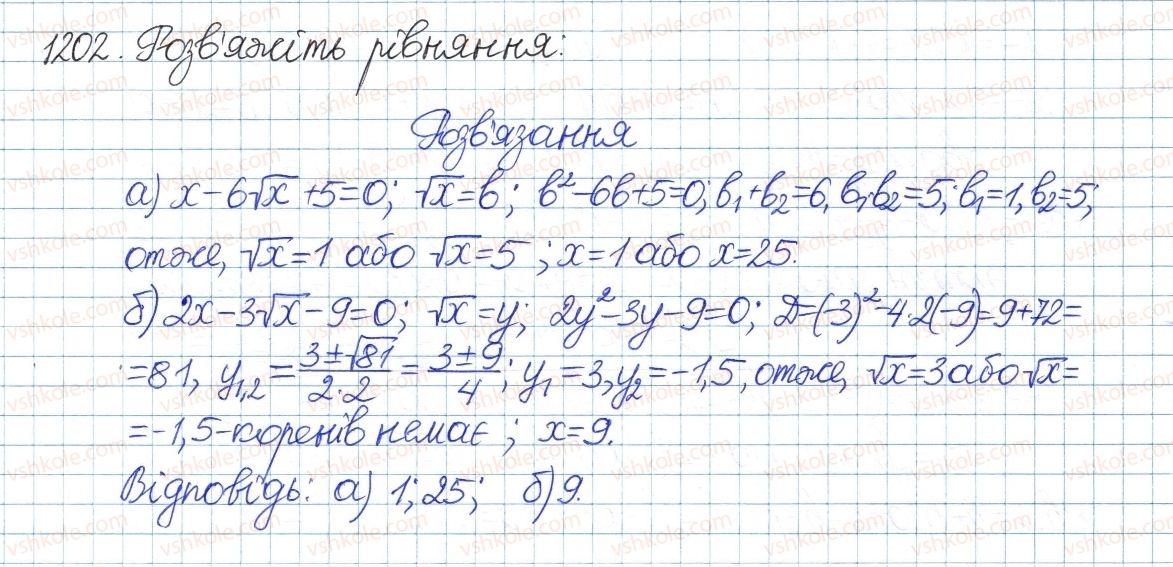 1202. Розв'яжіть рівняння:
Розв'язання
а) x-6√x+5=0; √x=b; b²-6b+5=0; b₁+b₂=6, b₁·b₂=5; b₁=1, b₂=5;
отже, √x=1 або √x=5; x=1 або x=25.
б) 2x-3√x-9=0; √x=y; 2y²-3y-9=0; D=(-3)²-4·2(-9)=9+72=
=81, y₁,₂=(3±√81)/(2·2)=(3±9)/4; y₁=3, y₂=-1,5, отже, √x=3 або √x=
=-1,5-коренів немає; x=9.
Відповідь: а) 1; 25; б) 9.